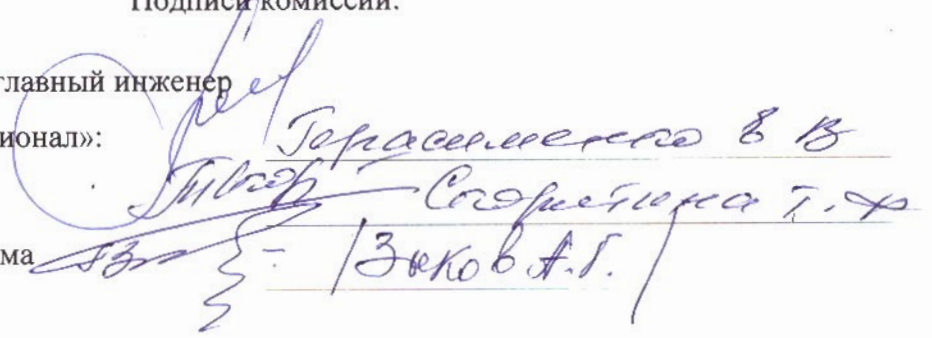 Подписи комиссии:
главный инженер
ионал»: Герасименко В В
Т. Ф
ма /Зыков А.Г./